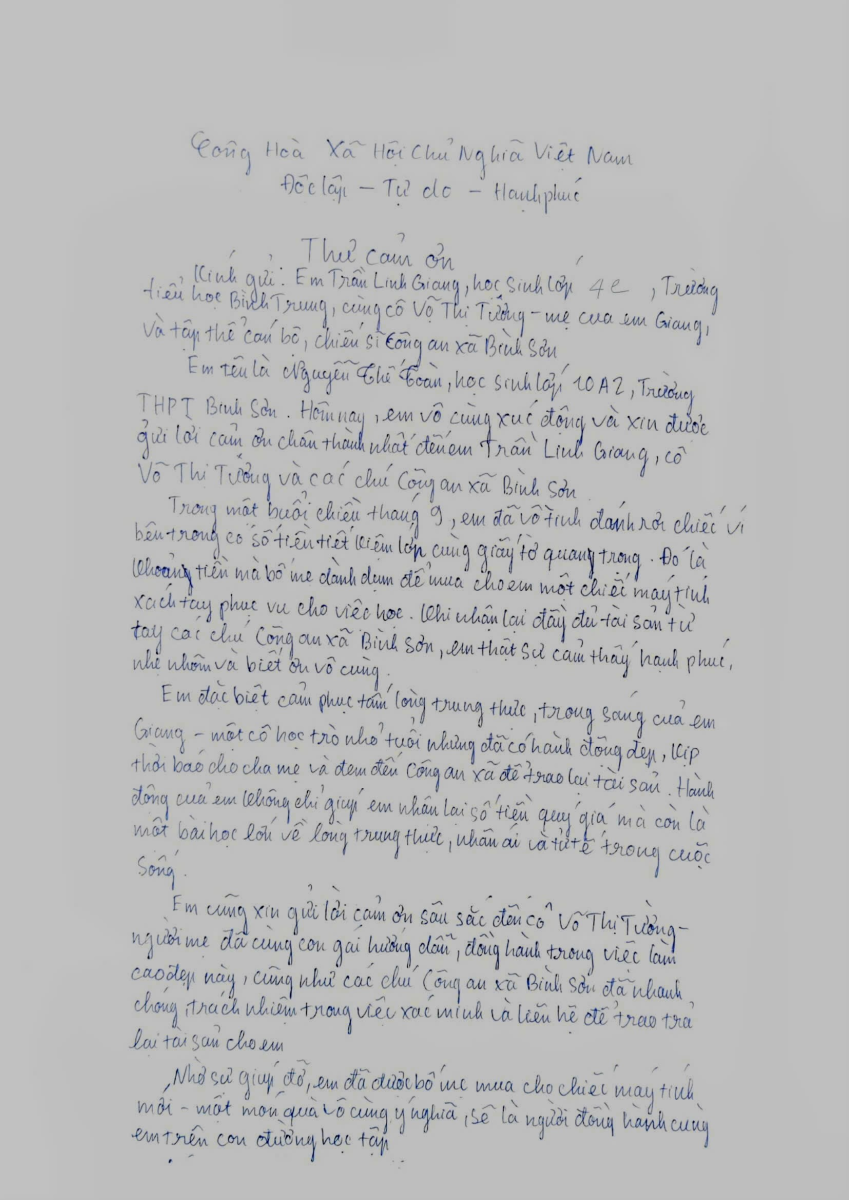 Cộng Hoà Xã Hội Chủ Nghĩa Việt Nam
Độc lập – Tự do – Hạnh phúc
Thư cảm ơn
Kính gửi: Em Trần Linh Giang, học sinh lớp 4C, Trường
tiểu học Bình Trung, cùng cô Võ Thị Tưởng – mẹ của em Giang,
và tập thể cán bộ, chiến sĩ Công an xã Bình Sơn
Em tên là Nguyễn Thế Toàn, học sinh lớp 10A2, Trường
THPT Bình Sơn. Hôm nay, em vô cùng xúc động và xin được
gửi lời cảm ơn chân thành nhất đến em Trần Linh Giang, cô
Võ Thị Tưởng và các chú Công an xã Bình Sơn.
Trong một buổi chiều tháng 9, em đã vô tình đánh rơi chiếc ví
bên trong có số tiền tiết kiệm lớn cùng giấy tờ quan trọng. Đó là
khoảng tiền mà bố mẹ dành dụm để mua cho em một chiếc máy tính
xách tay phục vụ cho việc học. Khi nhận lại đầy đủ tài sản từ
tay các chú Công an xã Bình Sơn, em thật sự cảm thấy hạnh phúc,
nhẹ nhõm và biết ơn vô cùng.
Em đặc biệt cảm phục tấm lòng trung thực, trong sáng của em
Giang – một cô học trò nhỏ tuổi nhưng đã có hành động đẹp, kịp
thời báo cho cha mẹ và đem đến Công an xã để trao lại tài sản. Hành
động của em không chỉ giúp em nhận lại số tiền quý giá mà còn là
một bài học lớn về lòng trung thực, nhân ái và tử tế trong cuộc
sống.
Em cũng xin gửi lời cảm ơn sâu sắc đến cô Võ Thị Tưởng –
người mẹ đã cùng con gái hướng dẫn, đồng hành trong việc làm
cao đẹp này, cũng như các chú Công an xã Bình Sơn đã nhanh
chóng, trách nhiệm trong việc xác minh và liên hệ để trao trả
lại tài sản cho em
Nhờ sự giúp đỡ, em đã được bố mẹ mua cho chiếc máy tính
mới – một món quà vô cùng ý nghĩa, sẽ là người đồng hành cùng
em trên con đường học tập